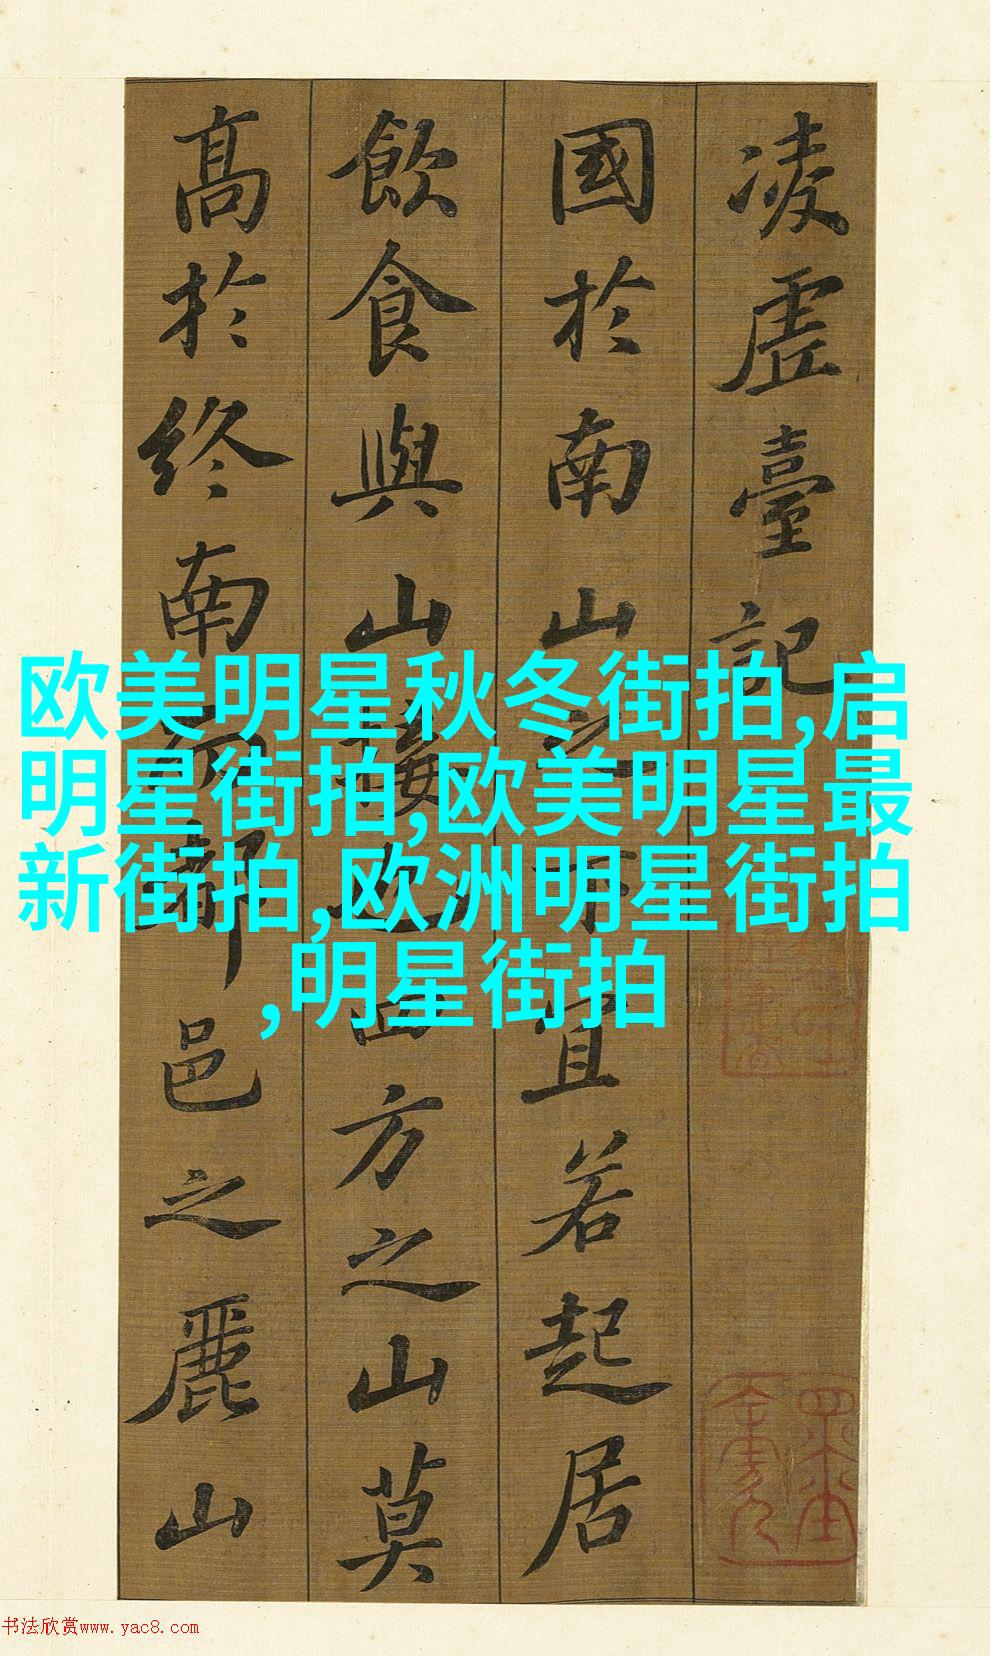 凌虛臺記
國於南山之下宜若起居
飲食與山接也四方之山莫
高於終南而都邑之麗山
欧美明星秋冬街拍,启
明星街拍,欧美明星最
新街拍,欧洲明星街拍
,明星街拍
书法欣赏www.yac8.com